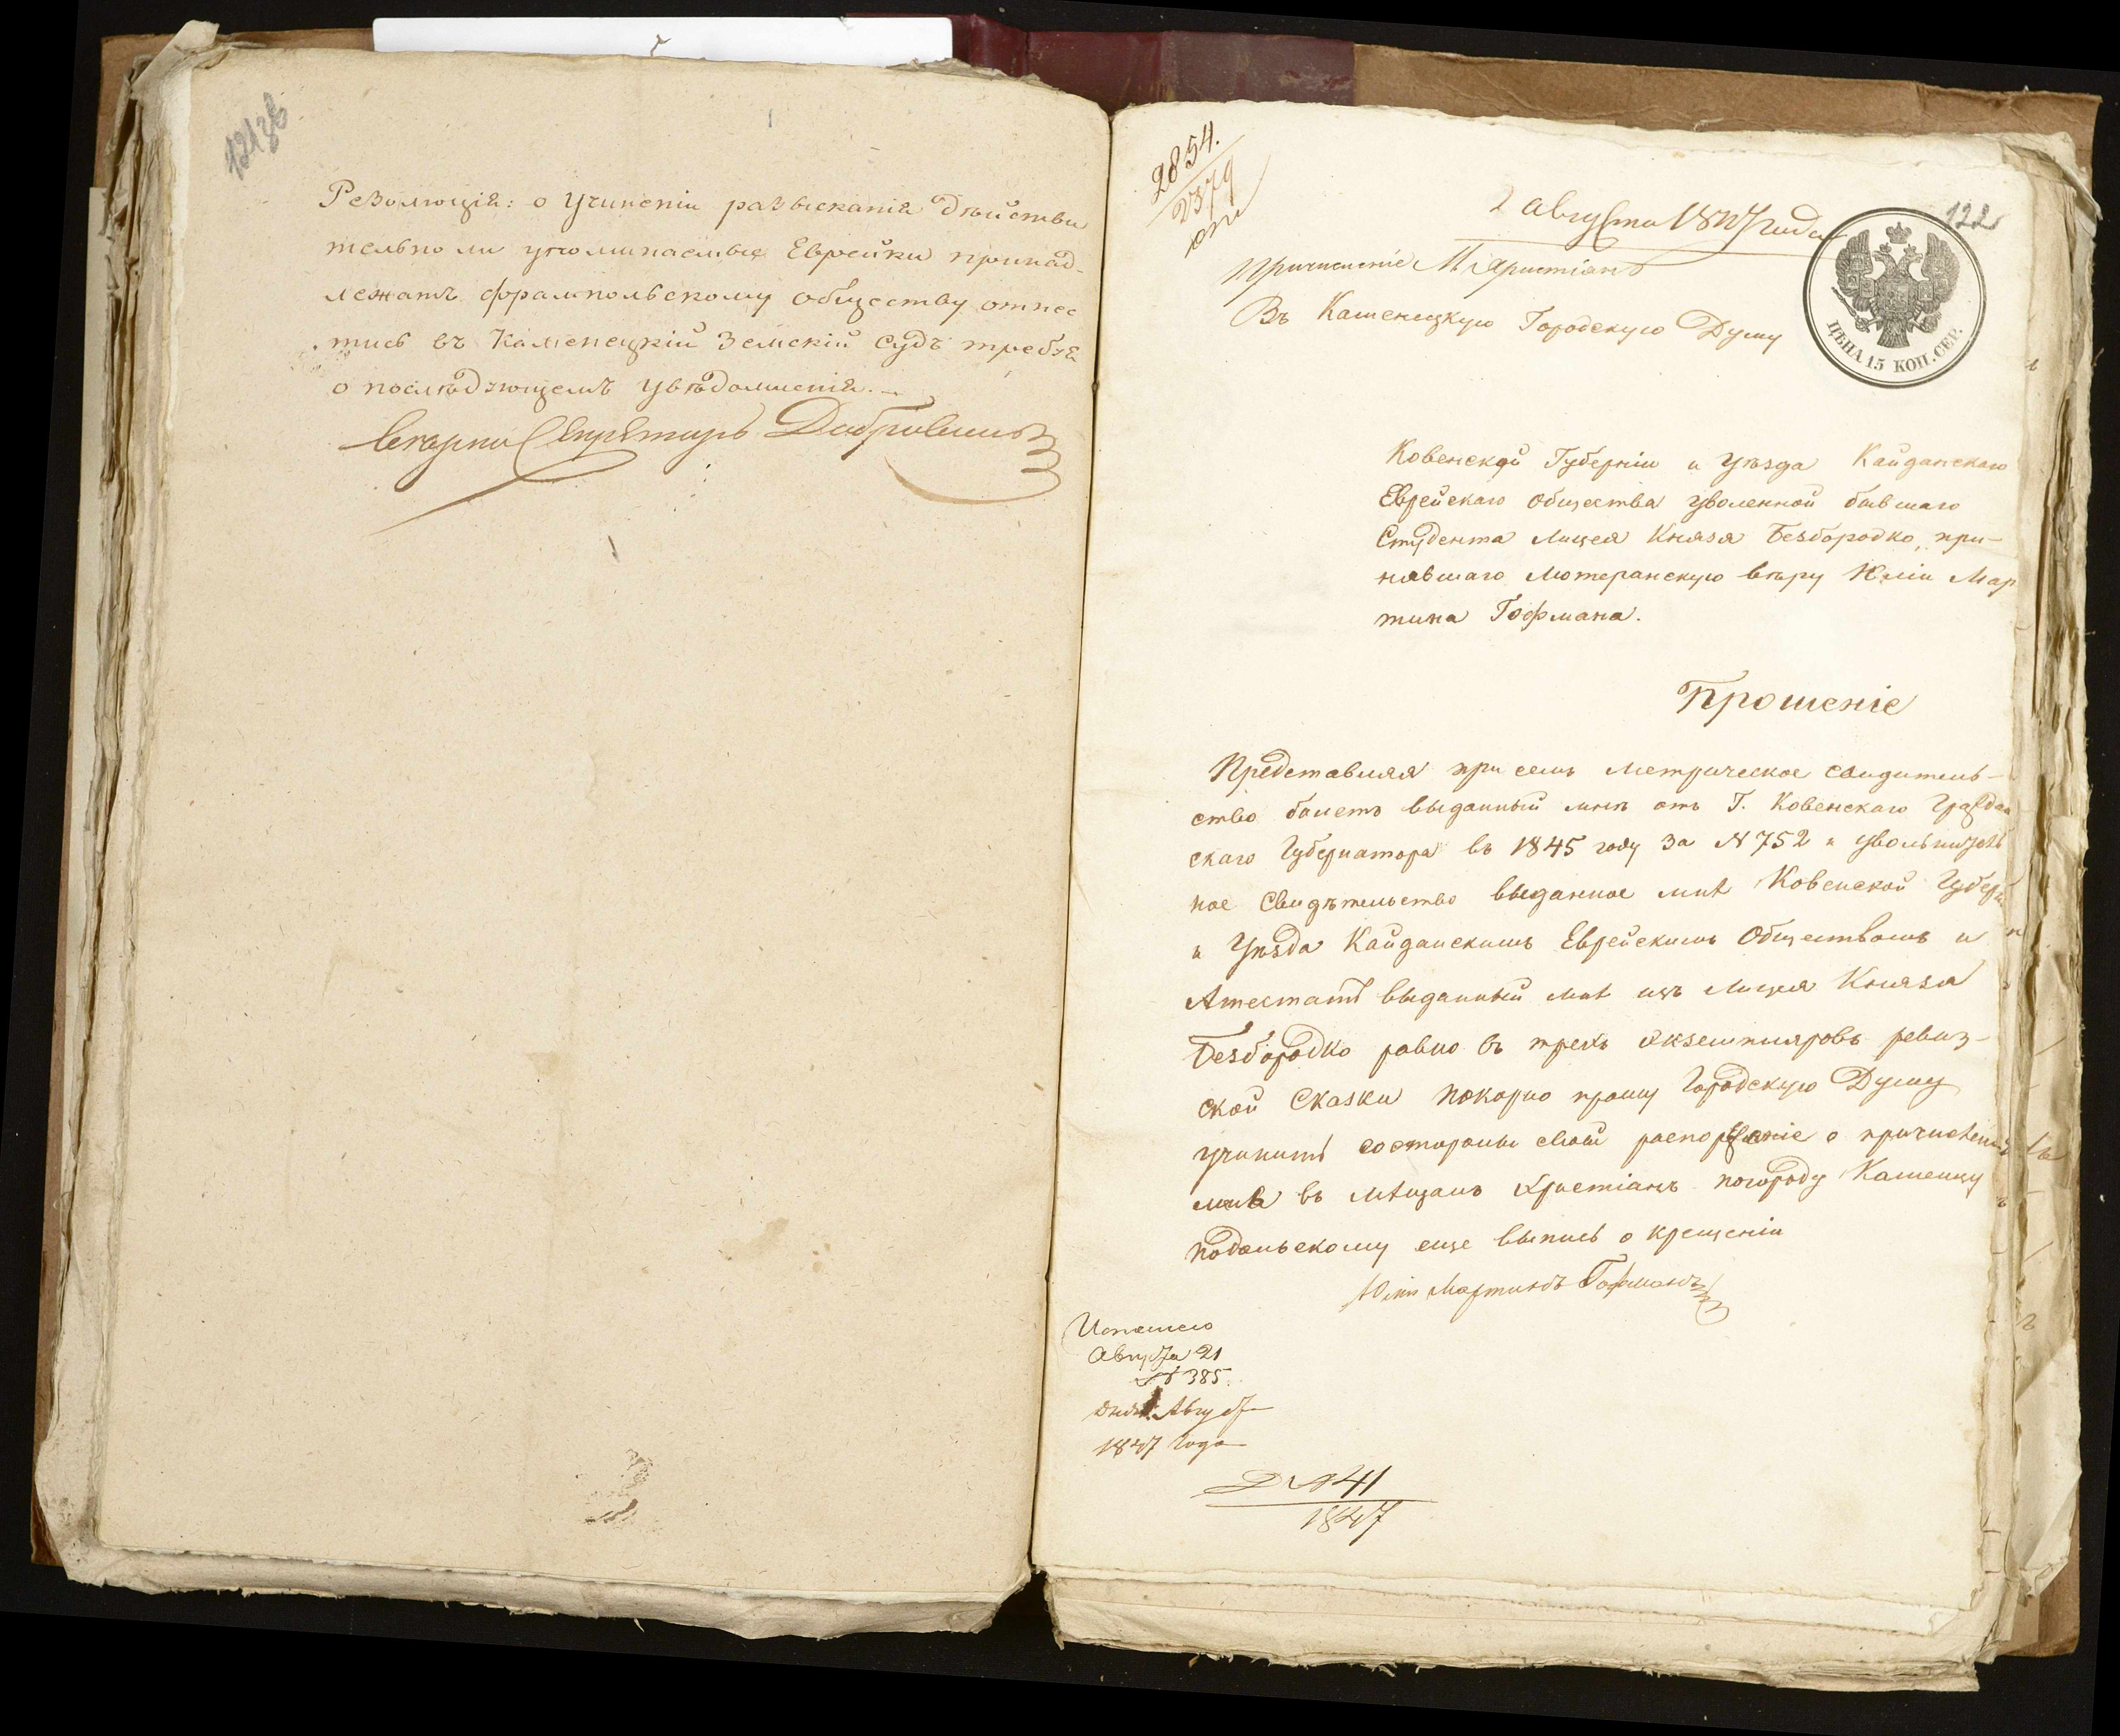 121зв
Резолюцiя: о учиненiи разысканiя дѣйстви
тельно ли упоминаемые Еврейки принад-
лежатъ фрампольскому обществу отнес
тись въ Каменецкiй Земскiй Судъ требуя
о послѣдующемъ увѣдомленiя.
Секретарь
2854.
2379
122
2 августа 1847 года
Причисленiе Христiанъ
Въ Каменецкую Городскую Думу
ЦѢНА 15 КОП. СЕР.
Ковенской Губернiи и уѣзда Кайданскаго
Еврейскаго Общества уволенной бывшаго
Студента Лицея Князя Безбородко, при-
нявшаго Лютеранскую вѣру Юлiи Мар
тина Гофмана.
Прошенiе
Представляя при семъ метрическое свидитель-
ство билетъ выданный мнѣ отъ Г. Ковенскаго Граждан
скаго Губернатора въ 1845 году за N 752 и увольнитель
ное Свидѣтельство выданное мнѣ Ковенской Губерн
и Уѣзда Кайданскимъ Еврейскимъ Обществомъ и
Атестатъ выданный мнѣ изъ Лицея Князя
Безбородко равно въ трехъ экземпляровъ ревиз-
ской Сказки покорно прошу Городскую Думу
учинить состороны своей распоряженiе о причисленiи
мнѣ въ мѣщанъ Христiанъ погороду Каменцу
подольскому еще выпись о крещенiи
Юлiй Мартинъ Гофманъ
Исполнено
Августа 21
№ 385.
Августа
1847 года
Д № 41
1847